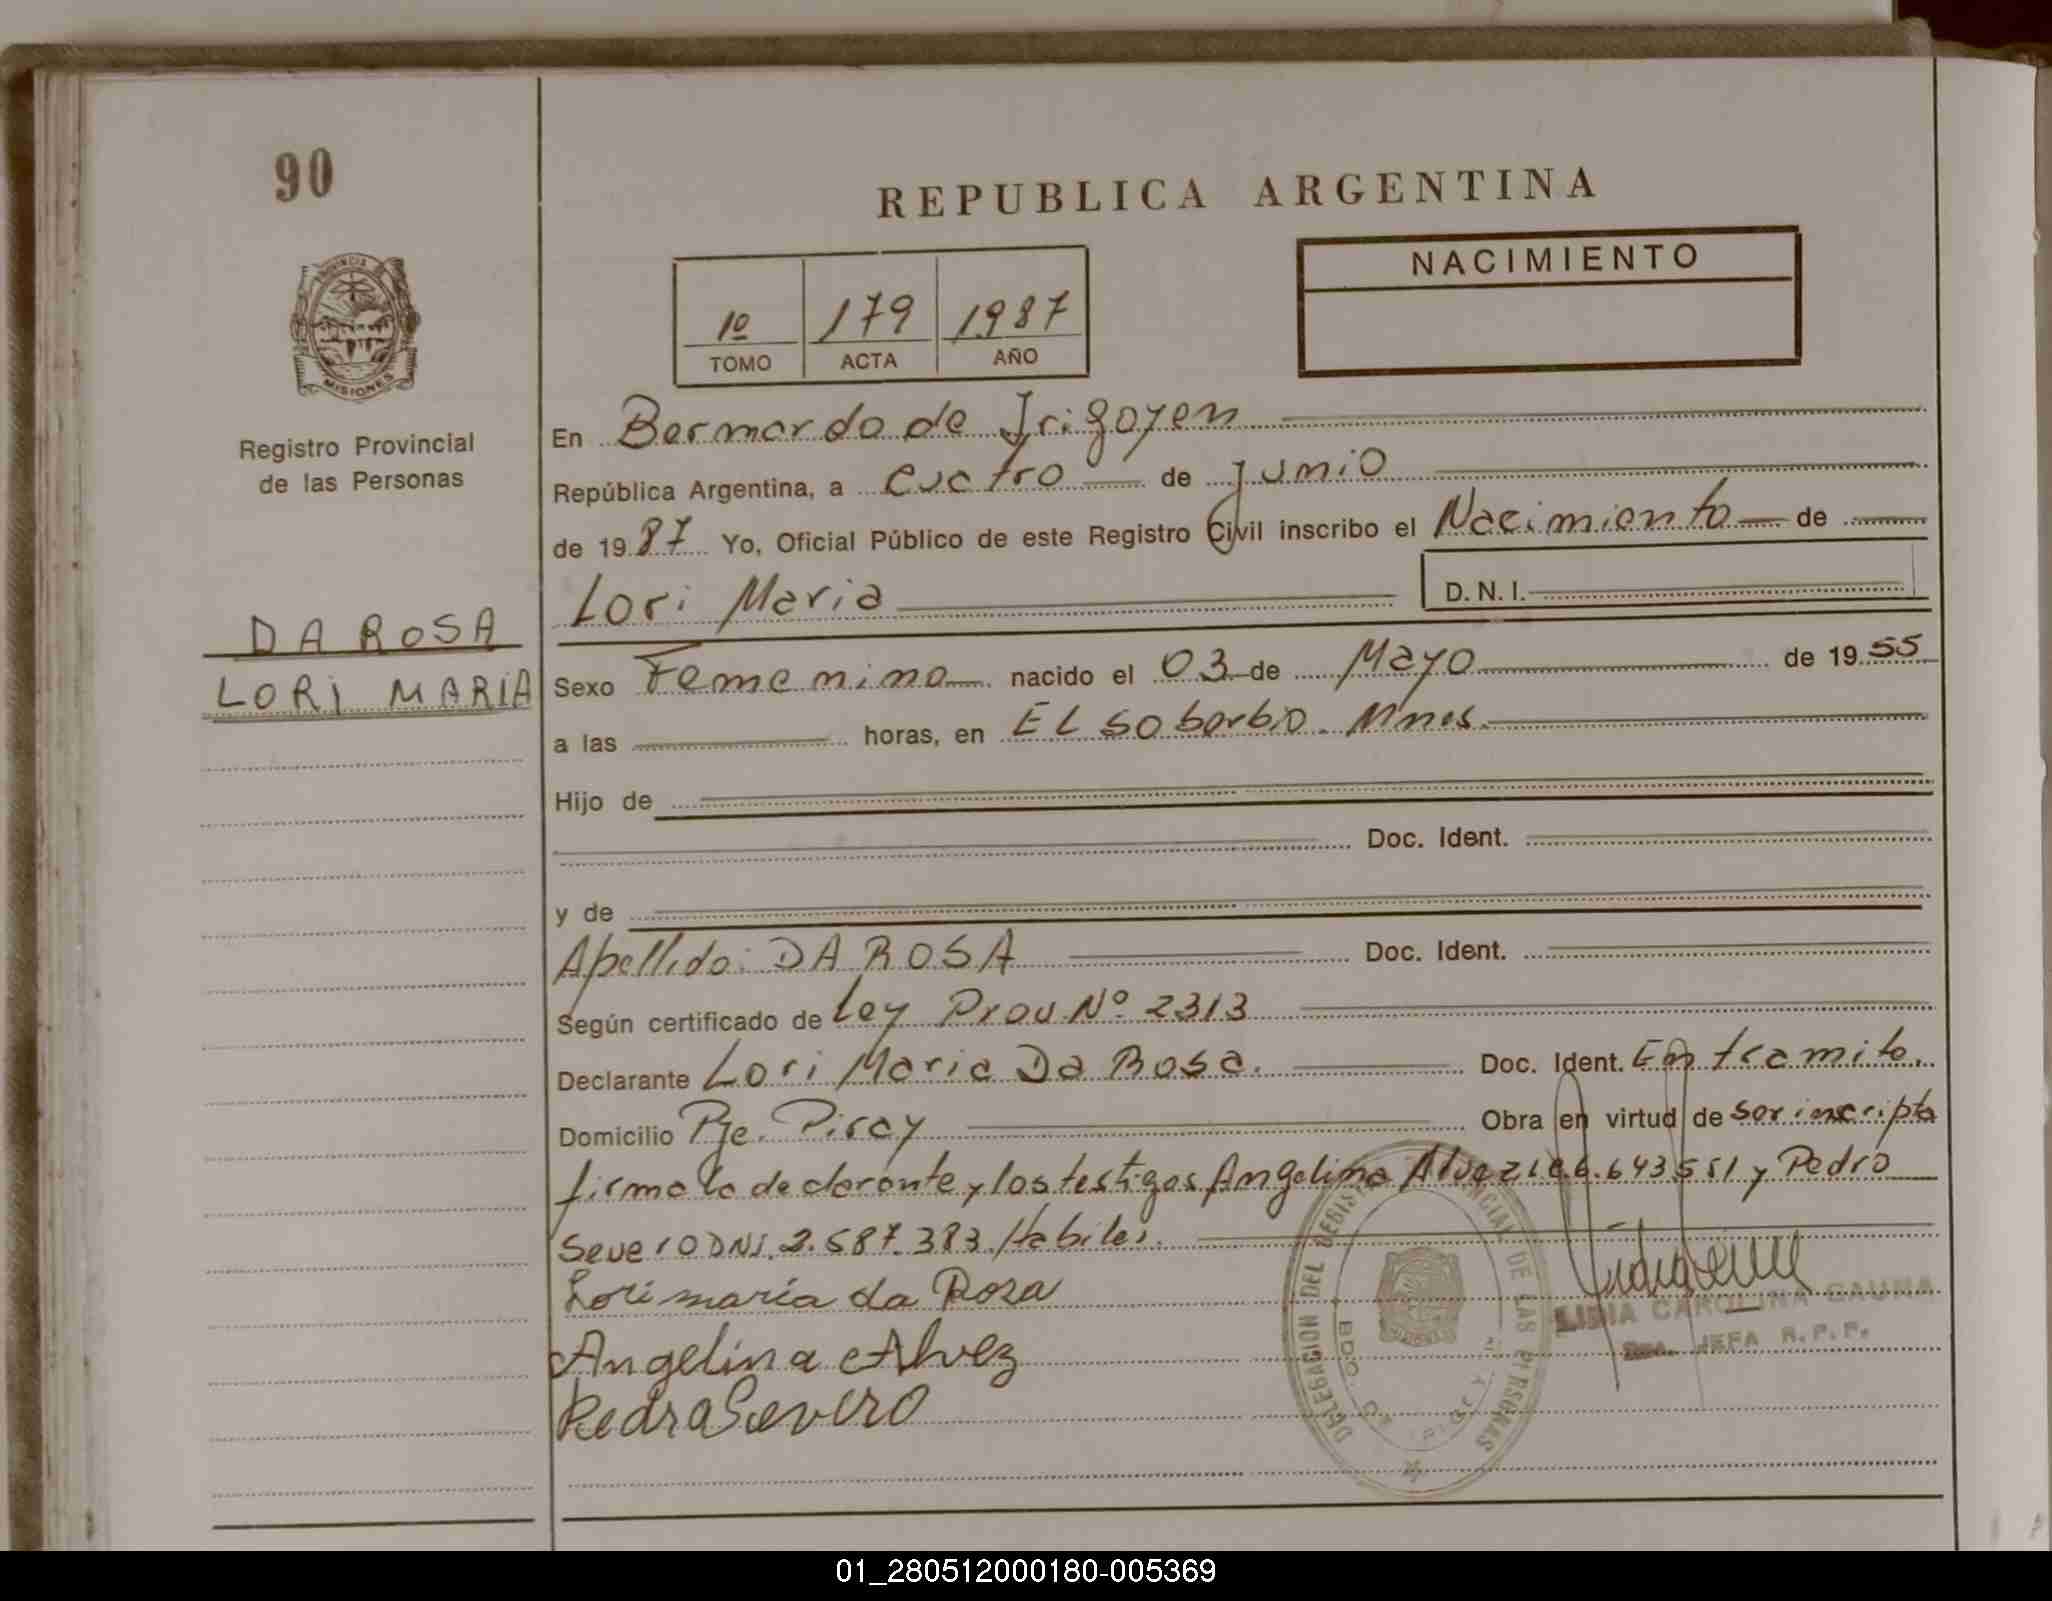 90
REPUBLICA ARGENTINA
PROVINCIA DE
MISIONES
Registro Provincial
de las Personas
1º 179 1987
TOMO ACTA AÑO
NACIMIENTO
En Bernardo de Irigoyen
República Argentina, a cuatro de junio
de 1987 Yo, Oficial Público de este Registro Civil inscribo el Nacimiento de
Lori Maria D.N.I.
DA ROSA
LORI MARIA
Sexo Femenino nacido el 03 de Mayo de 1955
a las horas, en EL Soberbio. Mnes.
Hijo de
Doc. Ident.
y de
Apellido: DA ROSA Doc. Ident.
Según certificado de Ley Prov. Nº 2313
Declarante Lori Maria Da Rosa. Doc. Ident. En tramite.
Domicilio Pje. Piray Obra en virtud de ser inscripta
firma la declarante y los testigos Angelina Alvez L.C. 6.643.551 y Pedro
Severo DNI. 2.587.383. Habiles.
Lori maría da Rosa
Angelina Alvez
Pedro Severo
DELEGACION DEL REGISTRO PROVINCIAL DE LAS PERSONAS
BDO. DE
LIDIA CAROLINA GAUNA
JEFA R.P.P.
01_280512000180-005369